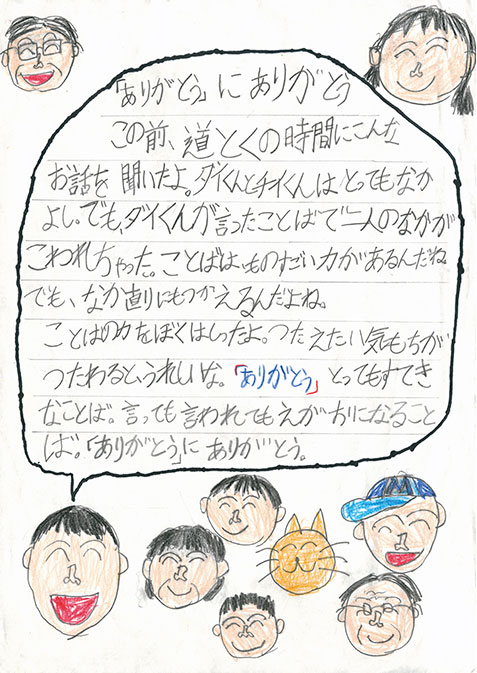 「ありがとう」にありがとう
この前、道とくの時間にこんな
お話を聞いたよ。ダイくんとチイくんはとってもなか
よし。でも、ダイくんが言ったことばで二人のなかが
こわれちゃった。ことばは、ものすごい力があるんだね。
でも、なか直りにもつかえるんだよね。
ことばの力をぼくはしったよ。つたえたい気もちが
つたわると、うれしいな。「ありがとう」とってもすてき
なことば。言っても言われてもえがおになること
ば。「ありがとう」にありがとう。